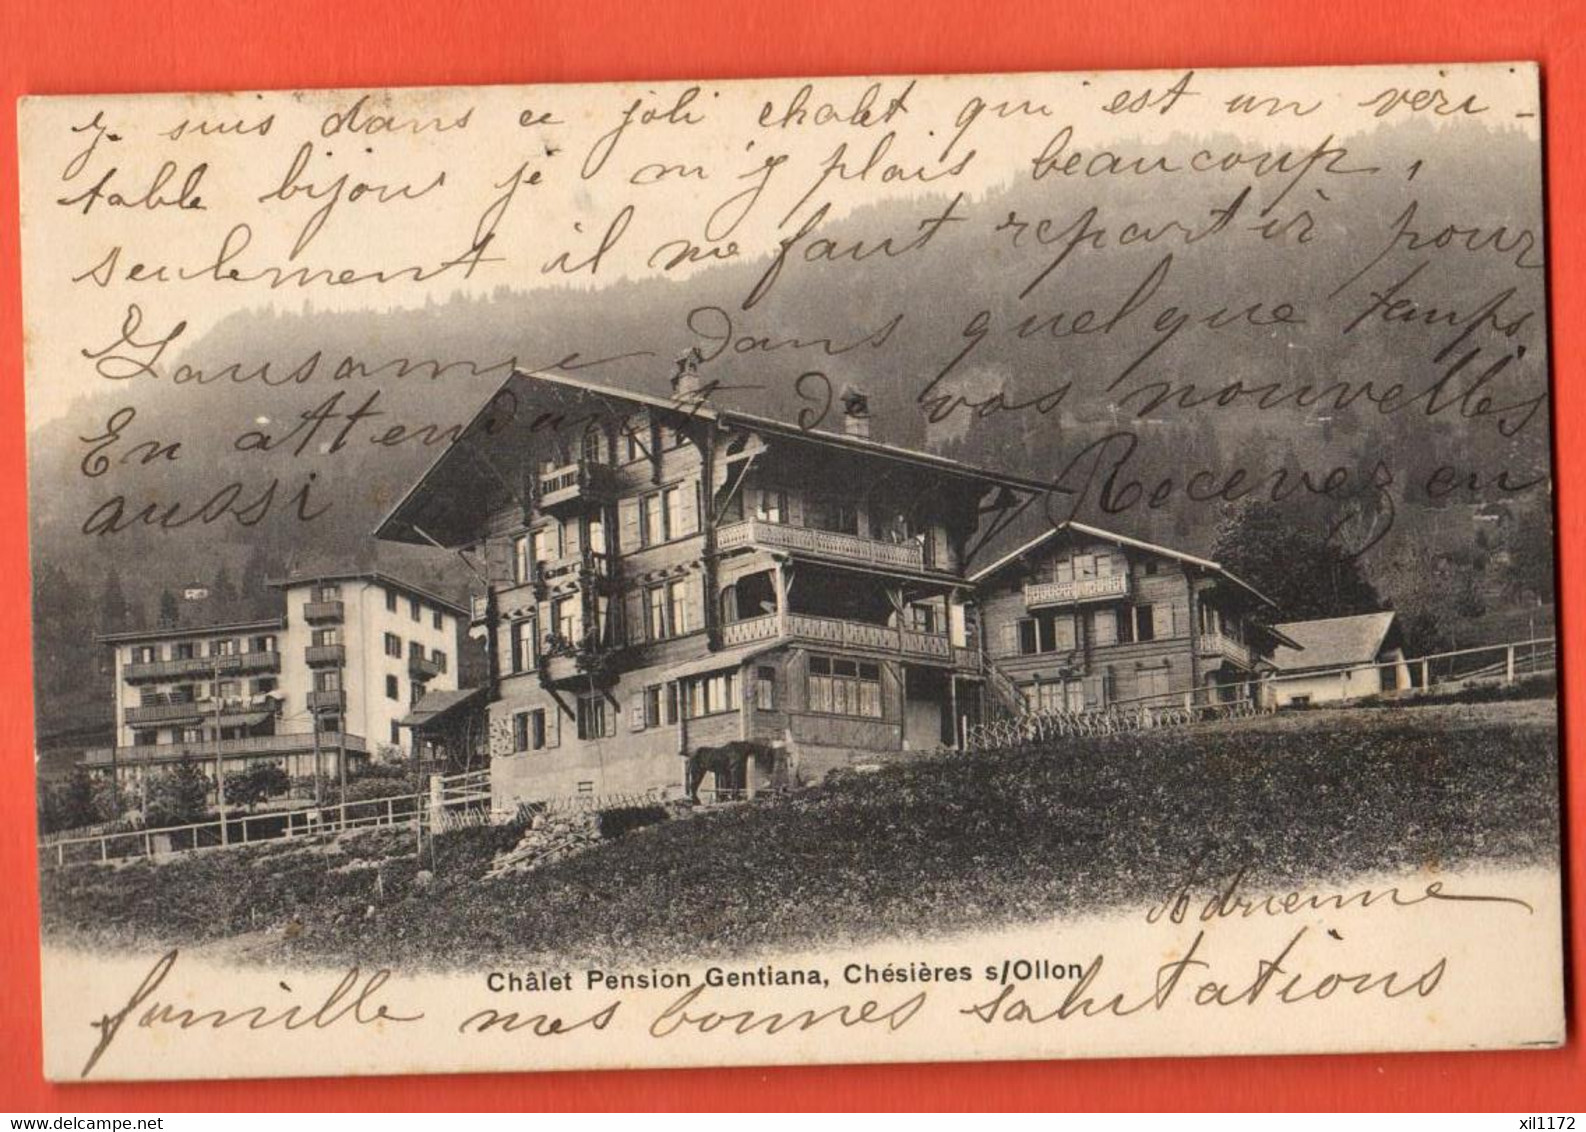 je suis dans ce joli chalet qui est un véri-
table bijou je m'y plais beaucoup,
seulement il me faut repartir pour
Lausanne dans quelque temps
En attendant de vos nouvelles
aussi Recevez en
famille mes bonnes salutations
Adrienne
Châlet Pension Gentiana, Chésières s/Ollon
delcampe.net
xil1172